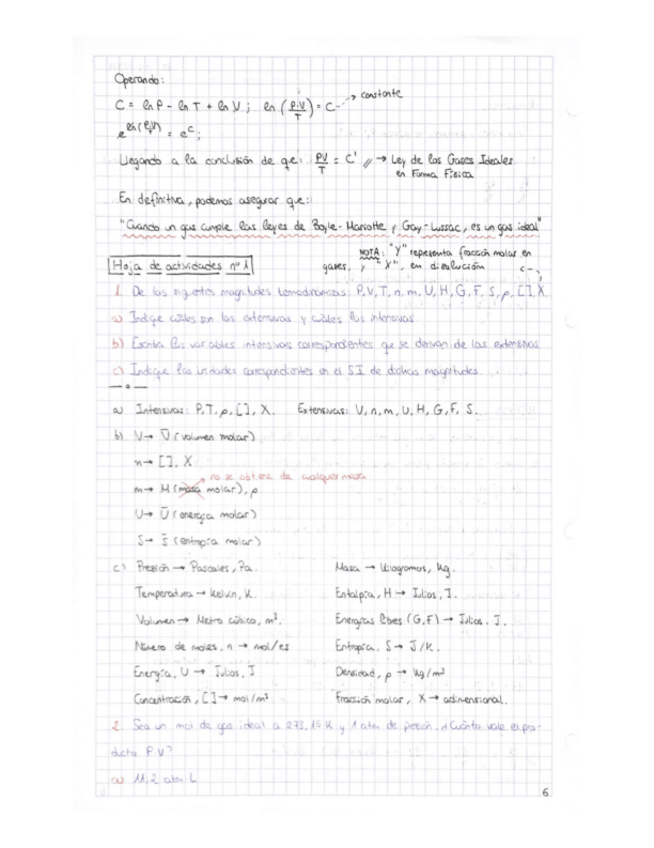 Operando:
C = ln P - ln T + ln V ; ln (P·V/T) = C → constante
e^ln(P·V/T) = e^C ;
Llegando a la conclusión de qe: PV/T = C' // → Ley de los Gases Ideales
en Forma Física
En definitiva, podemos asegurar que:
"Cuando un gas cumple las leyes de Boyle-Mariotte y Gay-Lussac, es un gas ideal"
NOTA: "Y" representa fracción molar en
gases, y "X", en disolución
Hoja de actividades nº 1
1. De las siguientes magnitudes termodinámicas: P, V, T, n, m, U, H, G, F, S, ρ, [ ], X
a) Indique cuáles son las extensivas y cuáles las intensivas.
b) Escriba las variables intensivas correspondientes que se derivan de las extensivas.
c) Indique las unidades correspondientes en el SI de dichas magnitudes.
a) Intensivas: P, T, ρ, [ ], X. Extensivas: V, n, m, U, H, G, F, S.
b) V → V̄ (volumen molar)
n → [ ], X
no se obtiene de cualquier masa
m → M (masa molar), ρ
U → Ū (energía molar)
S → S̄ (entropía molar)
c) Presión → Pascales, Pa. Masa → Kilogramos, Kg.
Temperatura → Kelvin, K. Entalpía, H → Julios, J.
Volumen → Metro cúbico, m³. Energías libres (G, F) → Julios, J.
Número de moles, n → mol/es Entropía, S → J/K.
Energía, U → Julios, J Densidad, ρ → Kg/m³
Concentración, [ ] → mol/m³ Fracción molar, X → adimensional.
2. Sea un mol de gas ideal a 273,15 K y 1 atm de presión. ¿Cuánto vale el pro-
ducto P.V?
a) 11,2 atm·L
6